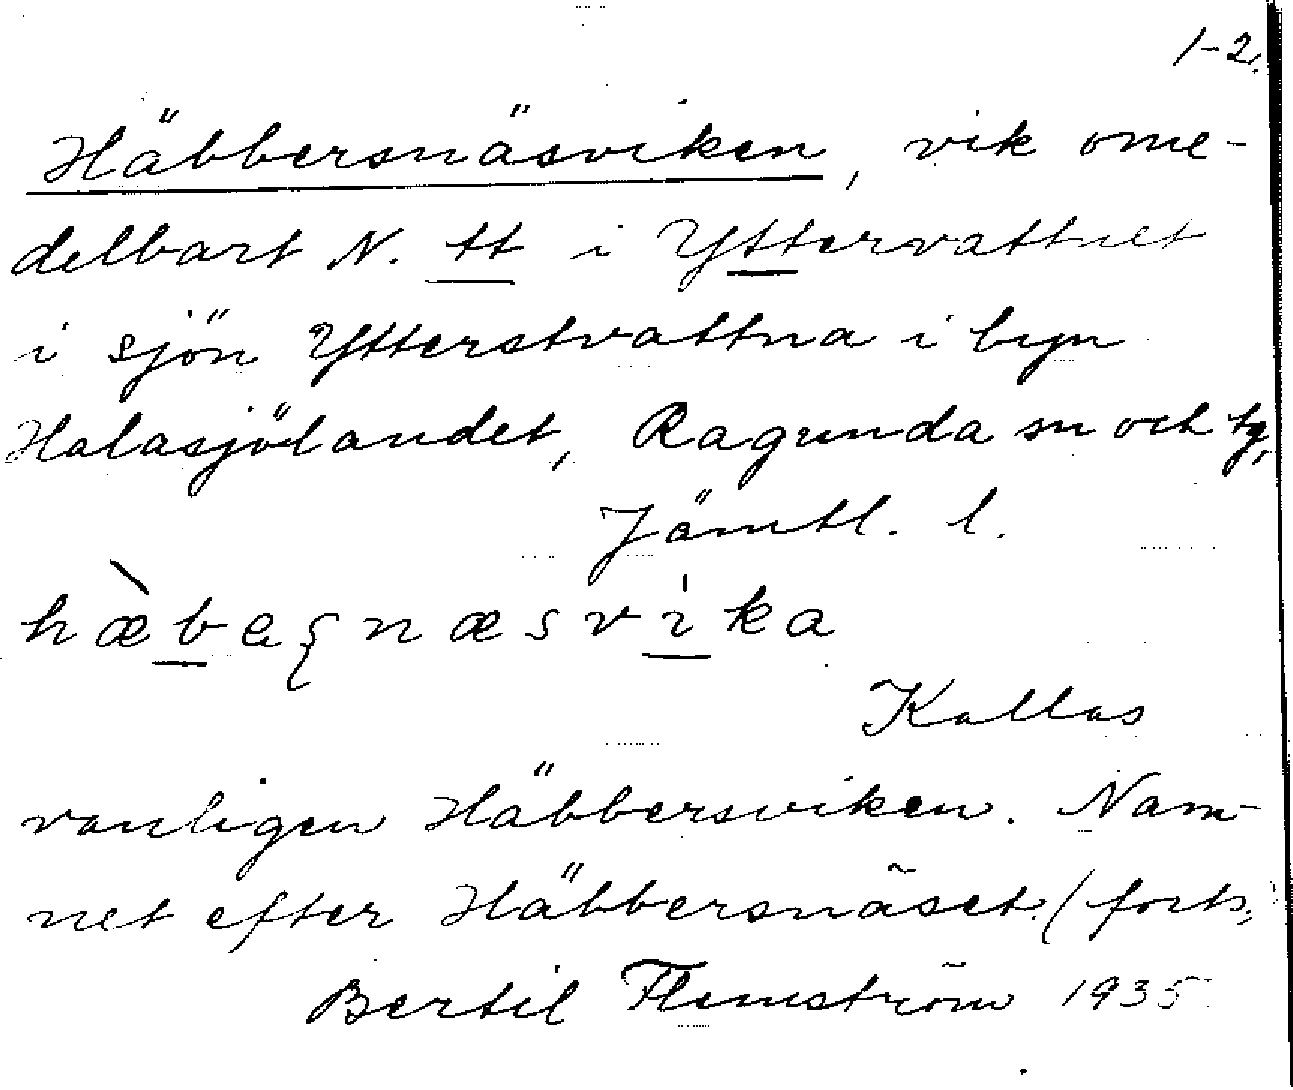 1-2.
Häbbersnäsviken, vik ome-
delbart N. tt i Yttervattnet
i sjön Ytterstvattna i byn
Halasjölandet, Ragunda sn och tg,
Jämtl. l.
hæ̀bəʂnæsvika
Kallas
vanligen Häbbersviken. Nam-
net efter Häbbersnäset. (forts.
Bertil Flemström 1935